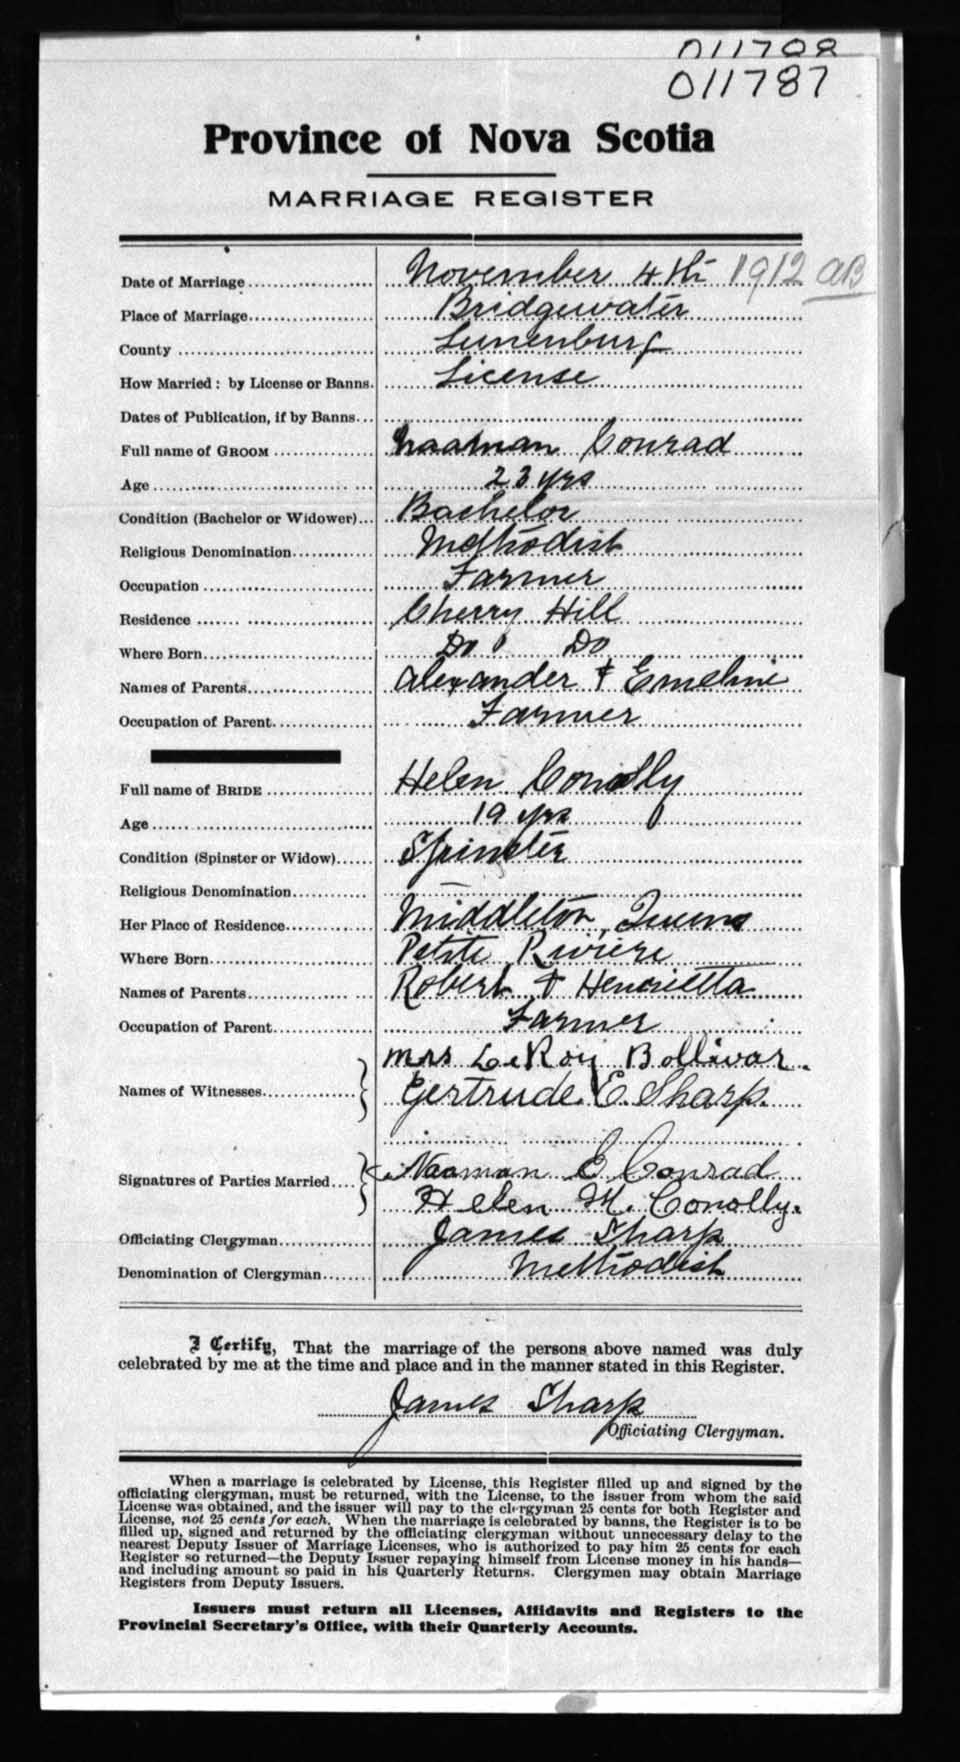 011708
011787
Province of Nova Scotia
MARRIAGE REGISTER
Date of Marriage November 4th 1912 AB
Place of Marriage Bridgewater
County Lunenburg
How Married: by License or Banns. License
Dates of Publication, if by Banns
Full name of GROOM Naaman Conrad
Age 23 yrs
Condition (Bachelor or Widower) Bachelor
Religious Denomination Methodist
Occupation Farmer
Residence Cherry Hill
Where Born Do Do
Names of Parents Alexander & Emeline
Occupation of Parent Farmer
Full name of BRIDE Helen Conolly
Age 19 yrs
Condition (Spinster or Widow) Spinster
Religious Denomination —
Her Place of Residence Middleton, Queens
Where Born Petite Riviere
Names of Parents Robert & Henrietta
Occupation of Parent Farmer
Mrs LeRoy Bollivar.
Names of Witnesses Gertrude E. Sharp.
Signatures of Parties Married Naaman E Conrad
Helen M. Conolly.
Officiating Clergyman James Sharp
Denomination of Clergyman Methodist
I Certify, That the marriage of the persons above named was duly
celebrated by me at the time and place and in the manner stated in this Register.
James Sharp
Officiating Clergyman.
When a marriage is celebrated by License, this Register filled up and signed by the
officiating clergyman, must be returned, with the License, to the issuer from whom the said
License was obtained, and the issuer will pay to the clergyman 25 cents for both Register and
License, not 25 cents for each. When the marriage is celebrated by banns, the Register is to be
filled up, signed and returned by the officiating clergyman without unnecessary delay to the
nearest Deputy Issuer of Marriage Licenses, who is authorized to pay him 25 cents for each
Register so returned—the Deputy Issuer repaying himself from License money in his hands—
and including amount so paid in his Quarterly Returns. Clergymen may obtain Marriage
Registers from Deputy Issuers.
Issuers must return all Licenses, Affidavits and Registers to the
Provincial Secretary's Office, with their Quarterly Accounts.